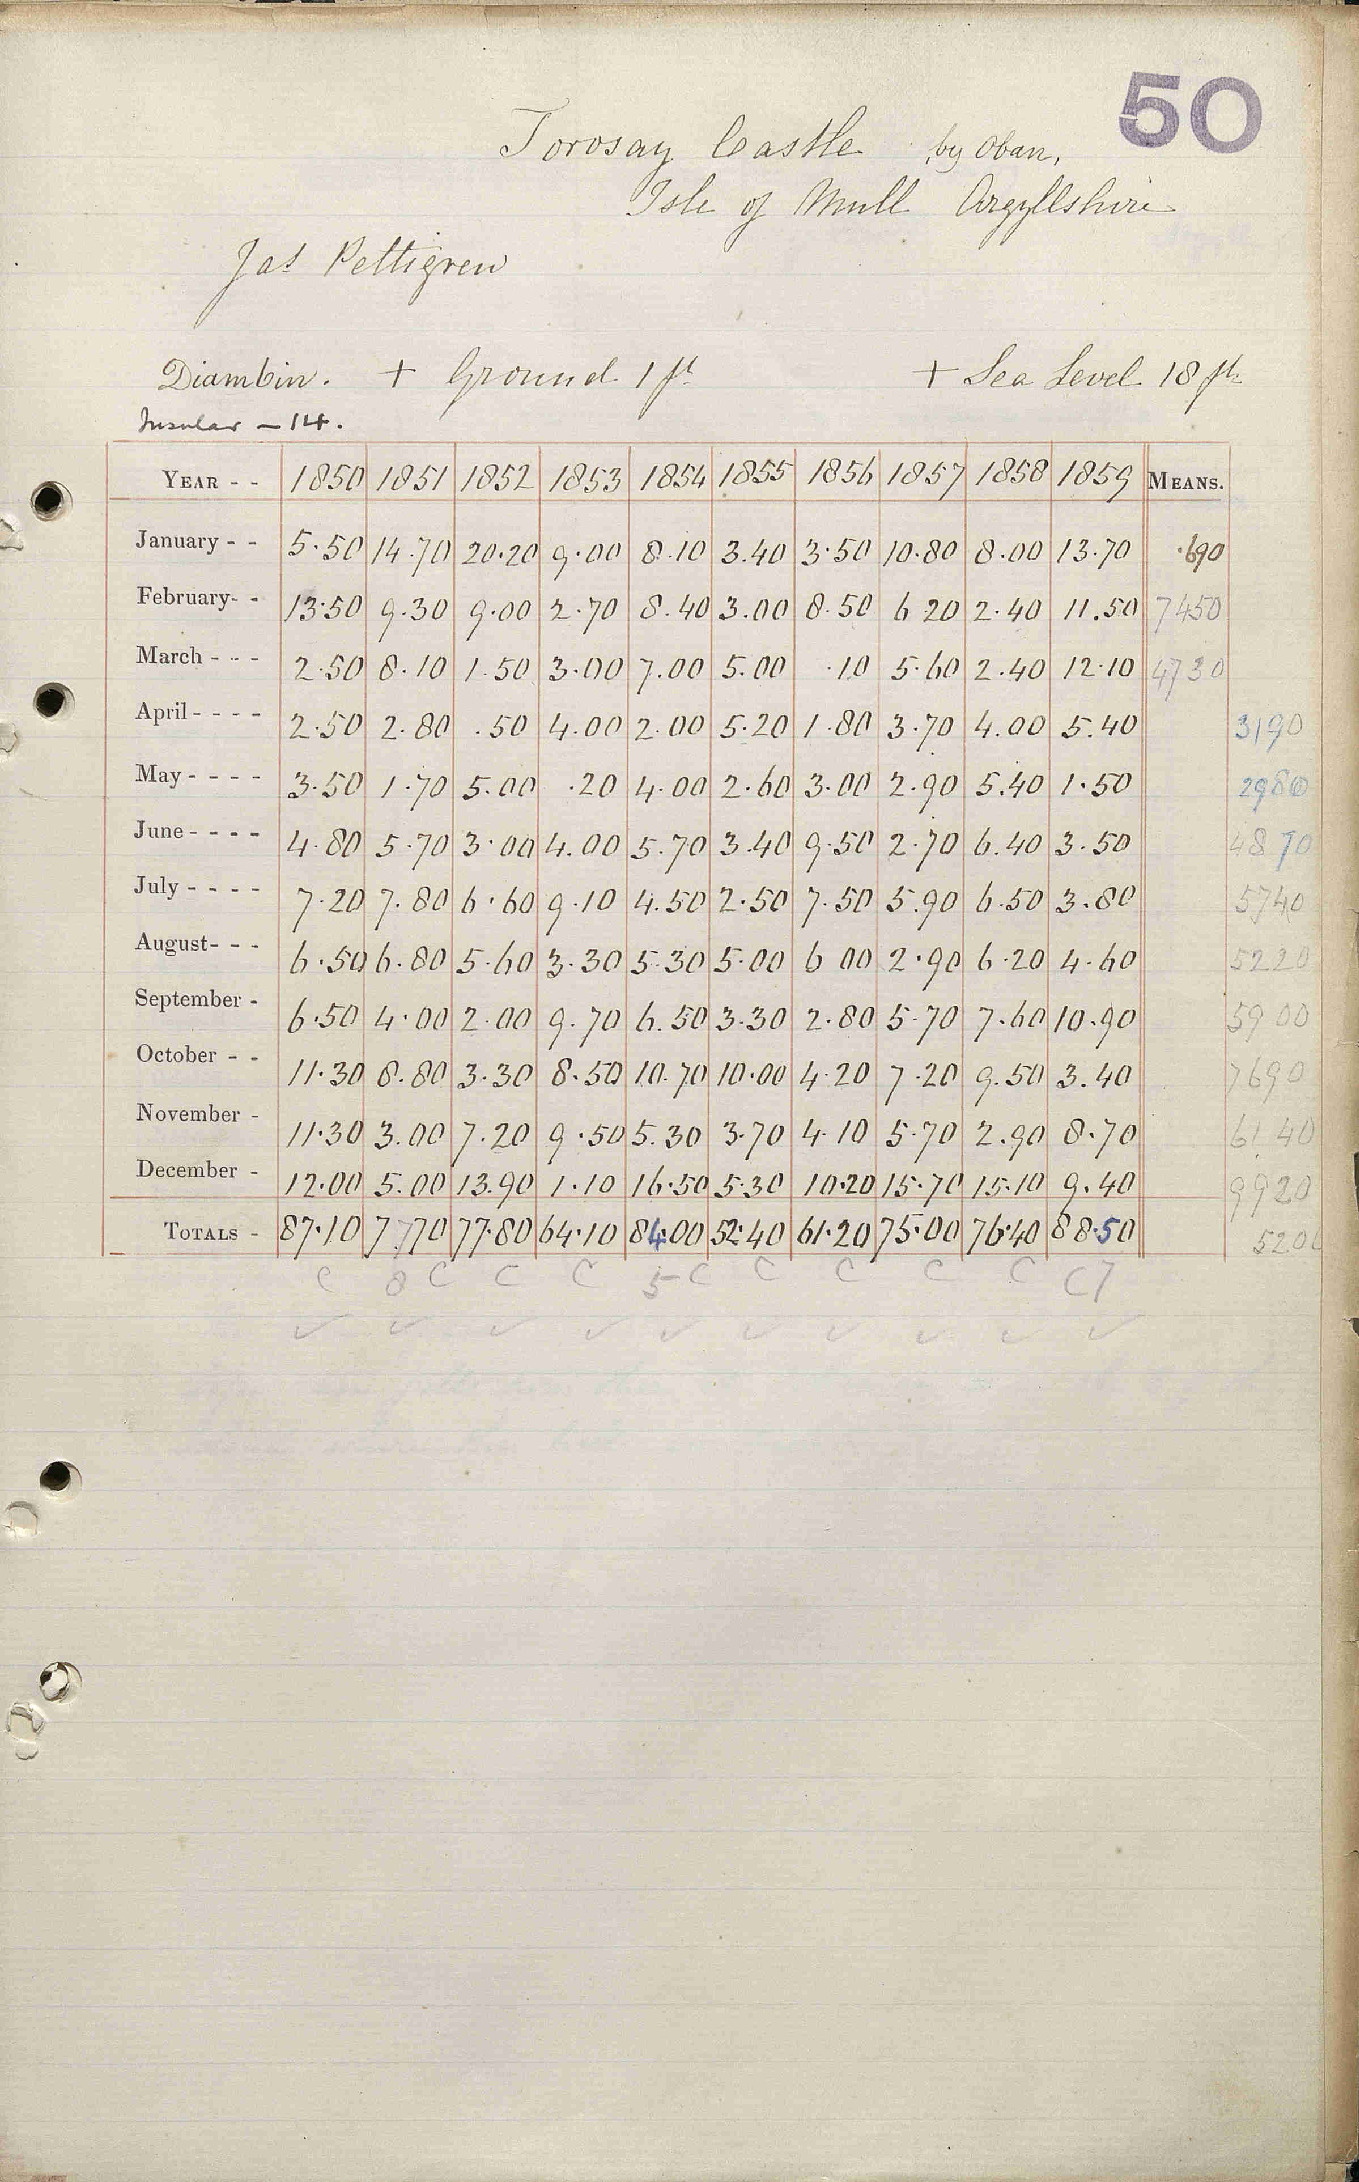 50
Torosay Castle by Oban,
Isle of Mull Argyllshire
Jas Pettigrew
Diam 6 in. + Ground 1 ft + Sea Level 18 ft.
Insular - 14.
YEAR - - 1850 1851 1852 1853 1854 1855 1856 1857 1858 1859 MEANS.
January - - 5.50 14.70 20.20 9.00 8.10 3.40 3.50 10.80 8.00 13.70 .690
February- - 13.50 9.30 9.00 2.70 8.40 3.00 8.50 6.20 2.40 11.50 7450
March - - - 2.50 8.10 1.50 3.00 7.00 5.00 .10 5.60 2.40 12.10 4730
April- - - - 2.50 2.80 .50 4.00 2.00 5.20 1.80 3.70 4.00 5.40 3190
May - - - - 3.50 1.70 5.00 .20 4.00 2.60 3.00 2.90 5.40 1.50 2980
June - - - - 4.80 5.70 3.00 4.00 5.70 3.40 9.50 2.70 6.40 3.50 4870
July - - - - 7.20 7.80 6.60 9.10 4.50 2.50 7.50 5.90 6.50 3.80 5740
August- - - 6.50 6.80 5.60 3.30 5.30 5.00 6 00 2.90 6.20 4.60 5220
September - 6.50 4.00 2.00 9.70 6.50 3.30 2.80 5.70 7.60 10.90 5900
October - - 11.30 8.80 3.30 8.50 10.70 10.00 4.20 7.20 9.50 3.40 7690
November - 11.30 3.00 7.20 9.50 5.30 3.70 4.10 5.70 2.90 8.70 6140
December - 12.00 5.00 13.90 1.10 16.50 5.30 10.20 15.70 15.10 9.40 9920
TOTALS - 87.10 77.70 77.80 64.10 84.00 52.40 61.20 75.00 76.40 88.50 520
C 8 C C C 5 C C C C C C 7